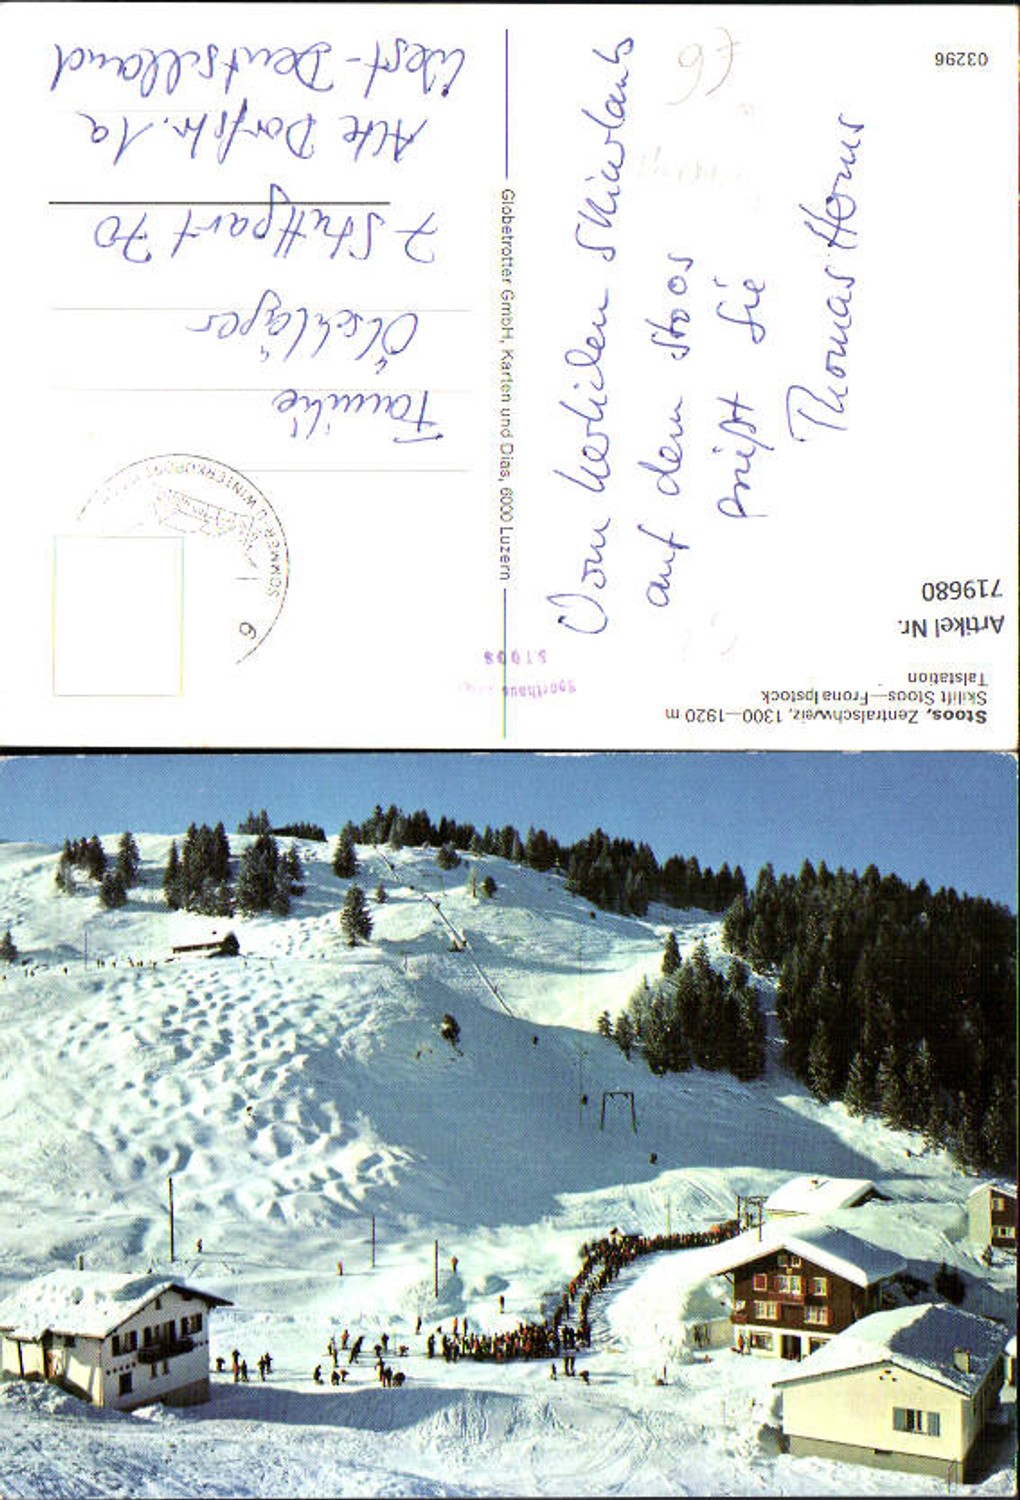 Stoos, Zentralschweiz, 1300—1920 m
Skilift Stoos—Fronalpstock
Talstation
Artikel Nr.
719680
03296
Vom herlichen Skiurlaub
auf dem Stoos
grüßt Sie
Thomas
Globetrotter GmbH, Karten und Dias, 6000 Luzern
Sporthaus
STOOS
SOMMER- U. WINTERKURORT
6
Familie
Ölschläger
7 Stuttgart 70
Alte Dorfstr. 1a
West-Deutschland